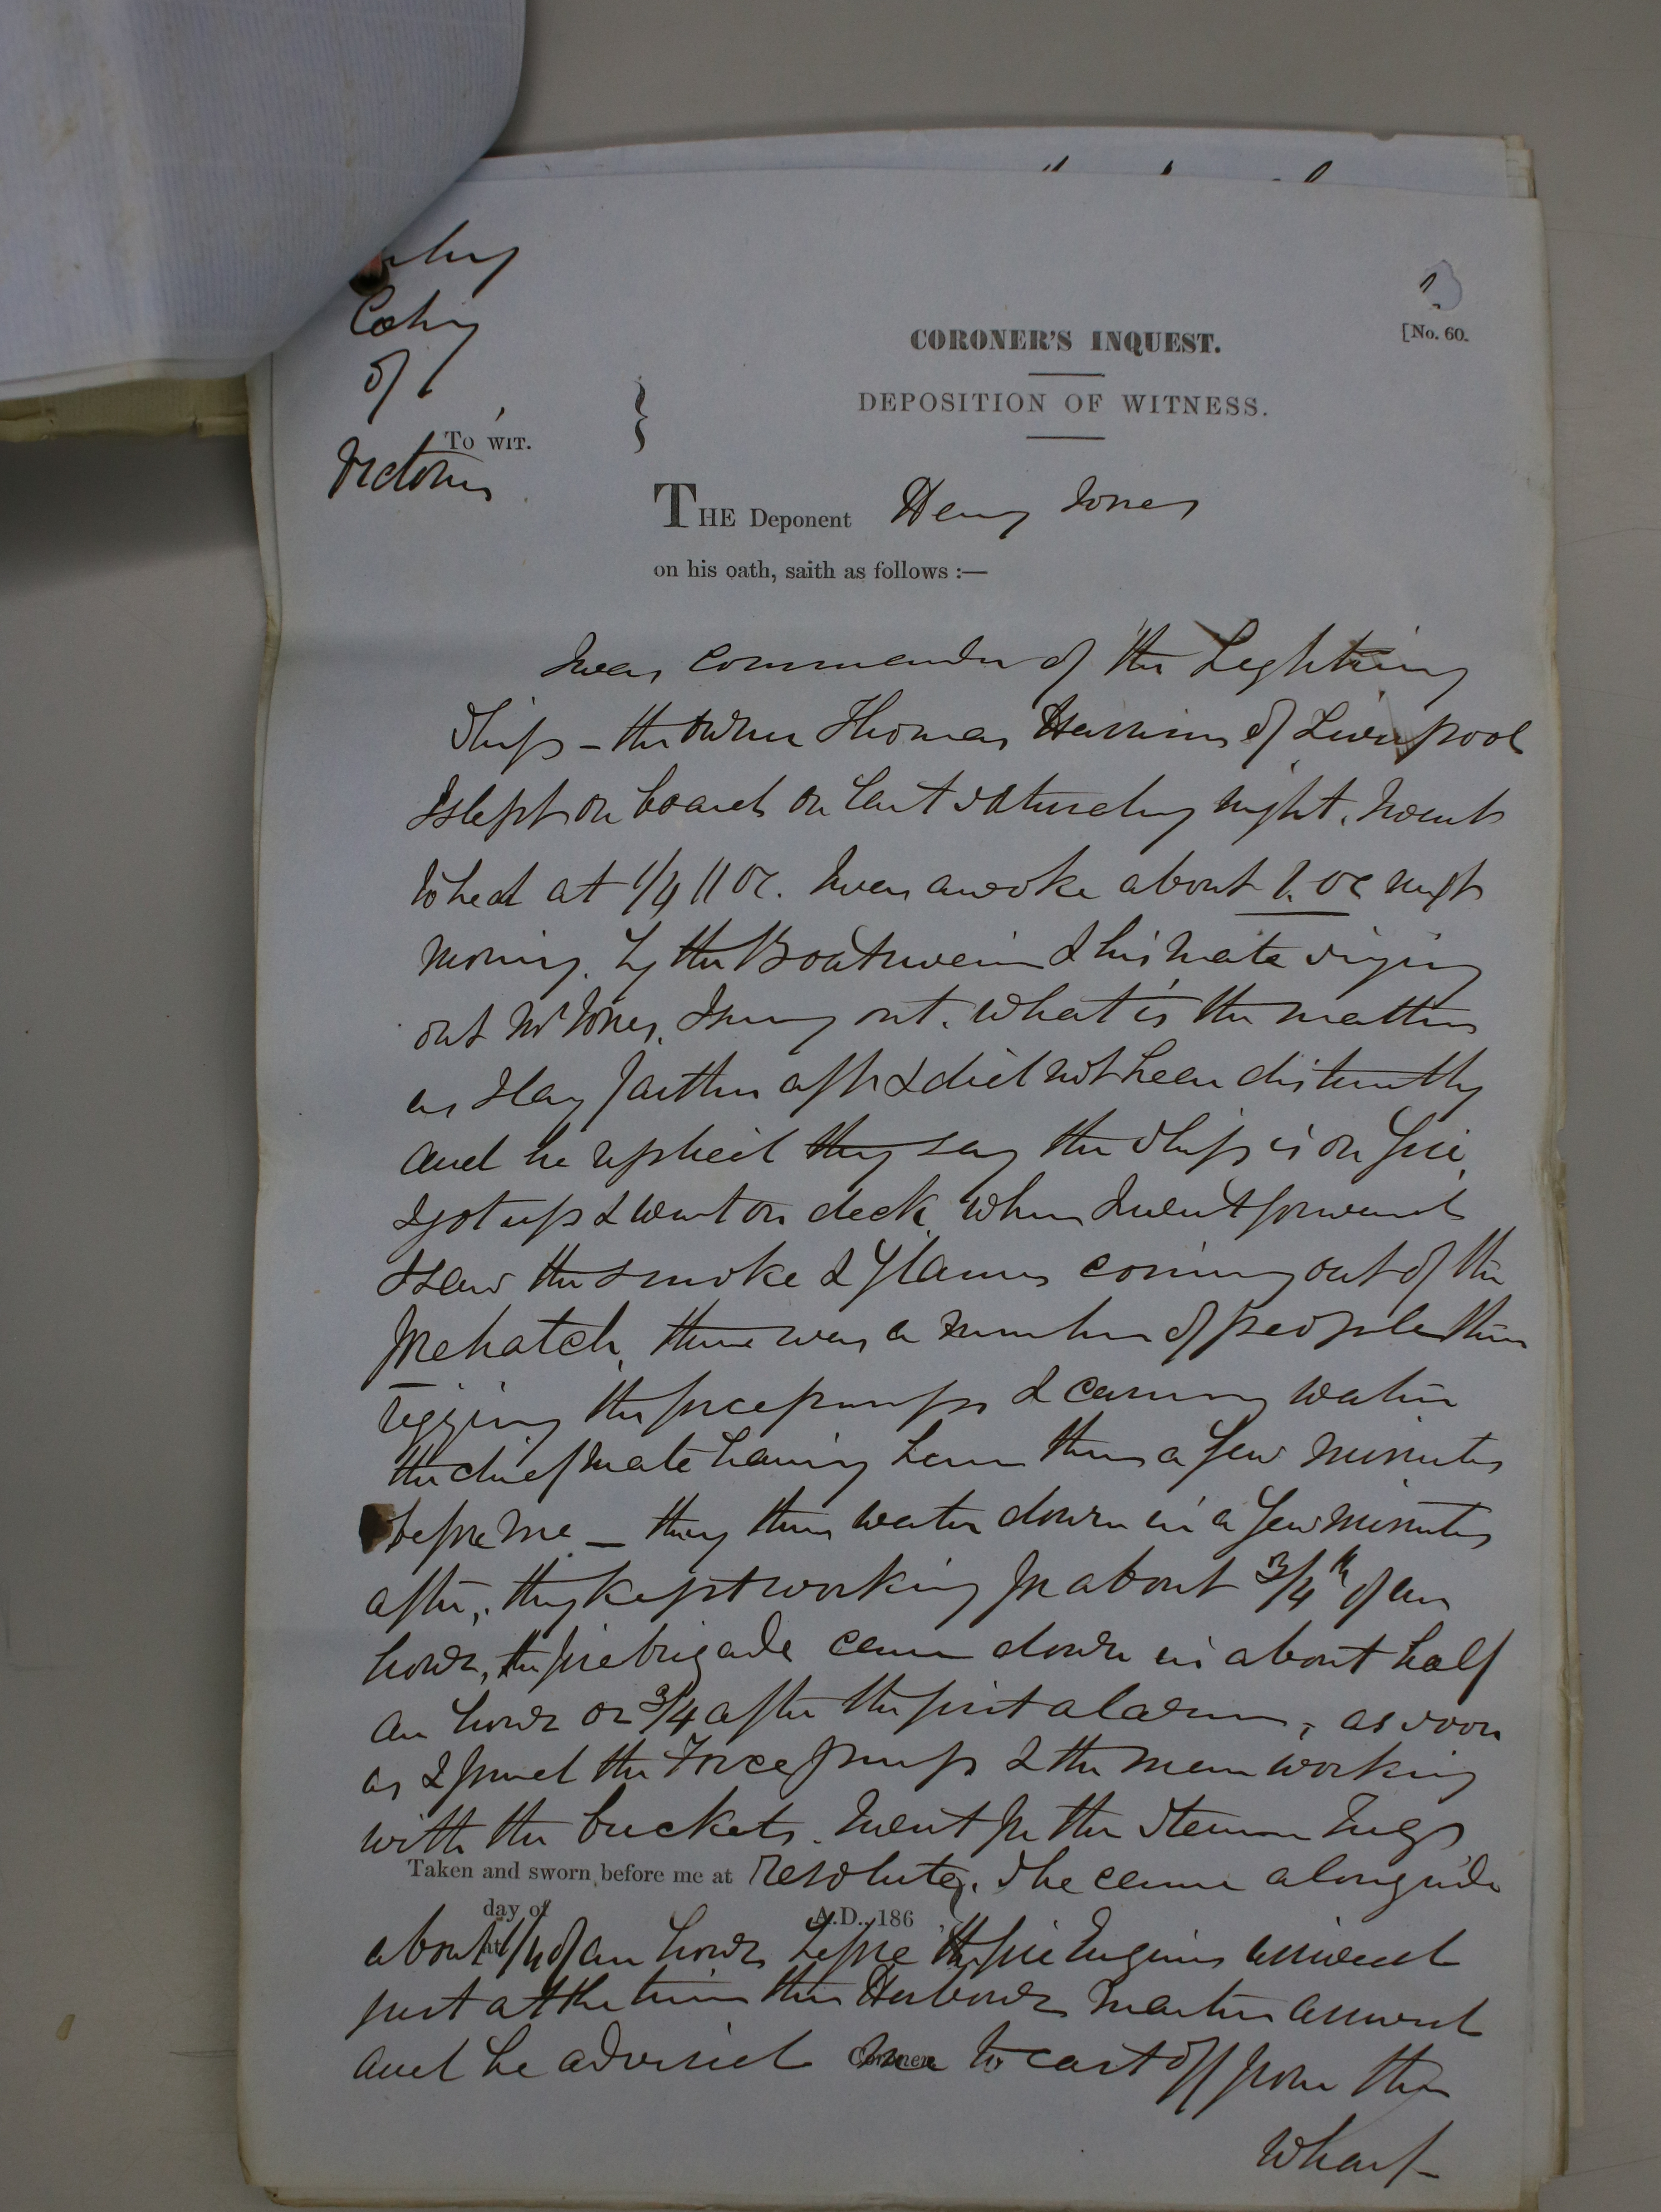 Colony
of
Victoria
To WIT.
[No. 60.
CORONER'S INQUEST.
DEPOSITION OF WITNESS.
THE Deponent Henry Jones
on his oath, saith as follows :—
I was commander of the Lightning
Ship – the owner Thomas Harrison of Liverpool
I slept on board on last Saturday night. I went
to bed at 1/4 11 oc. I was awoke about 1. oc next
morning. by the Boatswain & his mate singing
out Mr Jones, I sung out. What is the matter
as I lay farther aft & did not hear distinctly
and he replied they say the ship is on fire,
I got up & went on deck, when I went forward
I saw the smoke & flames coming out of the
forehatch, there was a number of people there
rigging the force pumps & carrying water
the chief mate having been there a few minutes
before me – they threw water down in a few minutes
after, they kept working for about 3/4th of an
hour, the fire brigade came down in about half
an hour or 3/4 after the first alarm, as soon
as I found the Force pump & the men working
with the buckets. I went for the Steam Tug
Taken and sworn before me at Resolute, She came alongside
day of A.D. 186
about 1/4 of an hour before the fire Engines arrived
just at the time the Harbour Master arrived
and he advised me to cast off from the
Coroner.
Wharf –